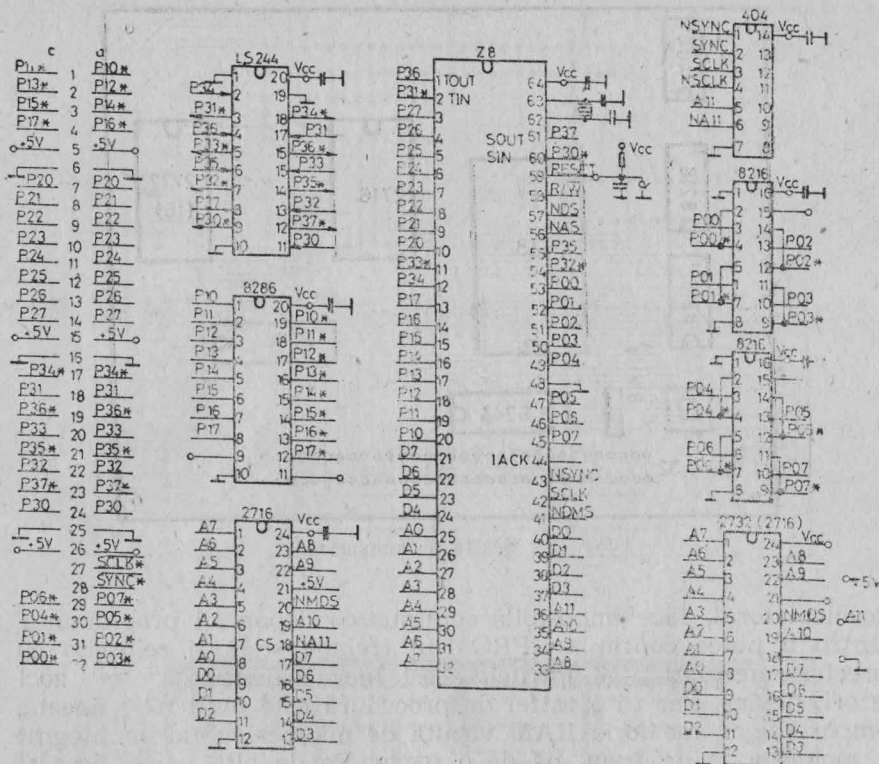 c a
P11* 1 P10*
P13* 2 P12*
P15* 3 P14*
P17* 4 P16*
+5V 5 +5V
6
P20 7 P20
P21 8 P21
P22 9 P22
P23 10 P23
P24 11 P24
P25 12 P25
P26 13 P26
P27 14 P27
+5V 15 +5V
16
P34* 17 P34*
P31 18 P31
P36* 19 P36*
P33 20 P33
P35* 21 P35*
P32 22 P32
P37* 23 P37*
P30 24 P30
25
+5V 26 +5V
27 SCLK*
28 SYNC*
P06* 29 P07*
P04* 30 P05*
P01* 31 P02*
P00* 32 P03*
LS244
1 20 Vcc
P34 2 19
P31* 3 18 P34*
P36 4 17 P31
P33* 5 16 P36*
P35 6 15 P33
P32* 7 14 P35*
P27 8 13 P32
P30* 9 12 P37*
10 11 P30
8286
P10 1 20 Vcc
P11 2 19 P10*
P12 3 18 P11*
P13 4 17 P12*
P14 5 16 P13*
P15 6 15 P14*
P16 7 14 P15*
P17 8 13 P16*
9 12 P17*
10 11
2716
A7 1 24 Vcc
A6 2 23 A8
A5 3 22 A9
A4 4 21 +5V
A3 5 20 NMDS
A2 6 19 A10
A1 7 CS 18 NA11
A0 8 17 D7
D0 9 16 D6
D1 10 15 D5
D2 11 14 D4
12 13 D3
Z8
P36 1 TOUT 64 Vcc
P31* 2 TIN 63
P27 3 62
P26 4 SOUT 61 P37
P25 5 SIN 60 P30*
P24 6 59 RESET
P23 7 58 R/W
P22 8 57 NDS
P21 9 56 NAS
P20 10 55 P35
P33* 11 54 P32*
P34 12 53 P00
P17 13 52 P01
P16 14 51 P02
P15 15 50 P03
P14 16 49 P04
P13 17 48
P12 18 47 P05
P11 19 46 P06
P10 20 45 P07
D7 21 IACK 44
D6 22 43 NSYNC
D5 23 42 SCLK
D4 24 41 NDMS
A0 25 40 D0
A1 26 39 D1
A2 27 38 D2
A3 28 37 D3
A4 29 36 A11
A5 30 35 A10
A6 31 34 A9
A7 32 33 A8
Vcc
404
NSYNC 1 14 Vcc
SYNC 2 13
SCLK 3 12
NSCLK 4 11
A11 5 10
NA11 6 9
7 8
8216
1 16 Vcc
2 15
P00 3 14
P00* 4 13 P02
5 12 P02*
P01 6 11
P01* 7 10 P03
8 9 P03*
8216
1 16 Vcc
2 15
P04 3 14
P04* 4 13 P05
5 12 P05*
P06 6 11
P06* 7 10 P07
8 9 P07*
2732 (2716)
A7 1 24 Vcc
A6 2 23 A8
A5 3 22 A9
A4 4 21
A3 5 20 NMDS
A2 6 19 A10
A1 7 18
A0 8 17 D7
D0 9 16 D6
D1 10 15 D5
D2 11 14 D4
12 13 D3
+5V
A11